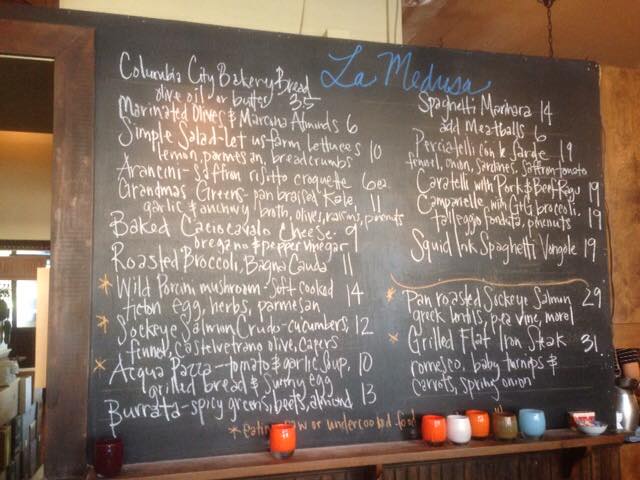 La Medusa
Columbia City Bakery Bread
olive oil or butter 3.5
Marinated Olives & Marcona Almonds 6
Simple Salad-let us farm lettuces
lemon, parmesan, breadcrumbs 10
Arancini-saffron risotto croquette 6ea.
Grandmas Greens-pan braised Kale,
garlic & anchovy broth, olives, raisins, pinenuts 11
Baked Caciocavalo Cheese-
oregano & pepper vinegar 9
Roasted Broccoli, Bagna Cauda 11
* Wild Porcini mushroom-soft cooked 14
egg, herbs, parmesan
* Sockeye Salmon Crudo-cucumbers, 12
fennel, Castelvetrano olive, capers
* Acqua Pazza-tomato & garlic soup, 10
grilled bread & Sunny egg
Burrata-spicy greens, beets, almond 13
Spaghetti Marinara 14
add Meatballs 6
Perciatelli con le Sarde 19
fennel, onion, sardines, saffron-tomato
Cavatelli with Pork & Beef Ragu 19
Campanelle with G+G broccoli,
talleggio fonduta, pinenuts 19
Squid Ink Spaghetti Vongole 19
* Pan roasted Sockeye Salmon 29
greek lentils, pea vine, morel
* Grilled Flat Iron Steak 31
romesco, baby turnips &
carrots, spring onion
* eating raw or undercooked food